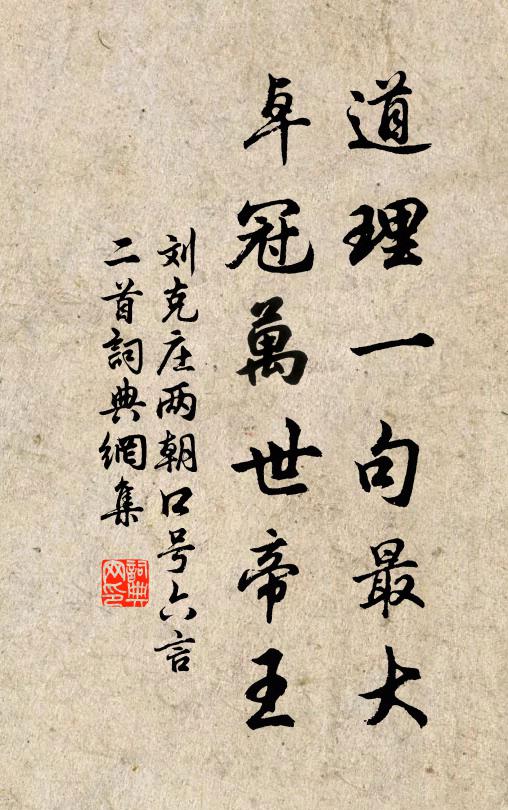 道理一句最大
卓冠萬世帝王
刘克庄两朝口号六言
二首詞典網集
詞典
网印